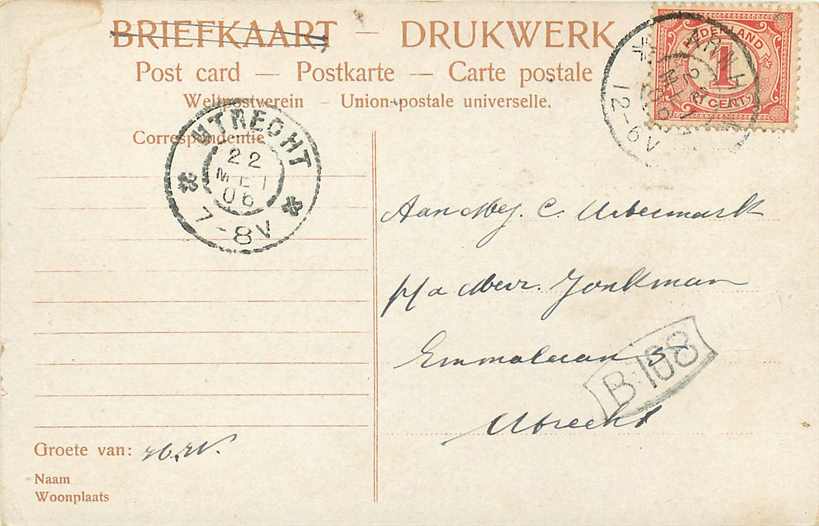 BRIEFKAART — DRUKWERK
Post card — Postkarte — Carte postale
Weltpostverein — Union postale universelle.
Correspondentie
NEDERLAND
1
CENT
12-6V
UTRECHT
22
MEI
06
7-8V
Aan Mej. C.
p/a Mevr. Jonkman
Emmalaan
B·168
Utrecht
Groete van:
Naam
Woonplaats